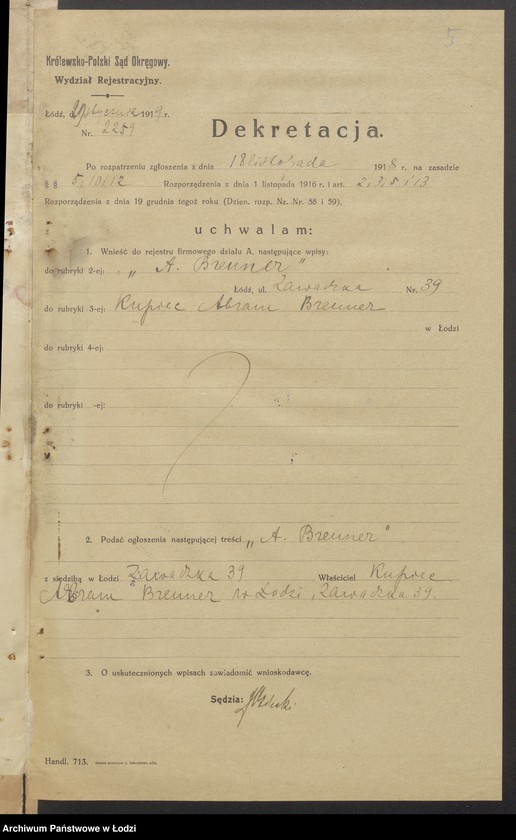 5
Królewsko-Polski Sąd Okręgowy.
Wydział Rejestracyjny.
Łódź, d. 29 stycznia 1919 r.
Nr. 2259
Dekretacja.
Po rozpatrzeniu zgłoszenia z dnia 18 listopada 1918 r. na zasadzie
§ § 5, 10 i 12 Rozporządzenia z dnia 1 listopada 1916 r. i art. 2, 3, 5 i 13
Rozporządzenia z dnia 19 grudnia tegoż roku (Dzien. rozp. Nr. Nr. 38 i 39).
uchwalam:
1. Wnieść do rejestru firmowego działu A. następujące wpisy:
do rubryki 2-ej: „A. Brenner"
Łódź, ul. Zawadzka Nr. 39
do rubryki 3-ej: Kupiec Abram Brenner
w Łodzi
do rubryki 4-ej:
do rubryki -ej:
2. Podać ogłoszenia następującej treści „A. Brenner"
z siedzibą w Łodzi Zawadzka 39 Właściciel Kupiec
Abram Brenner w Łodzi, Zawadzka 39.
3. O uskutecznionych wpisach zawiadomić wnioskodawcę.
Sędzia:
Handl. 713.
Archiwum Państwowe w Łodzi